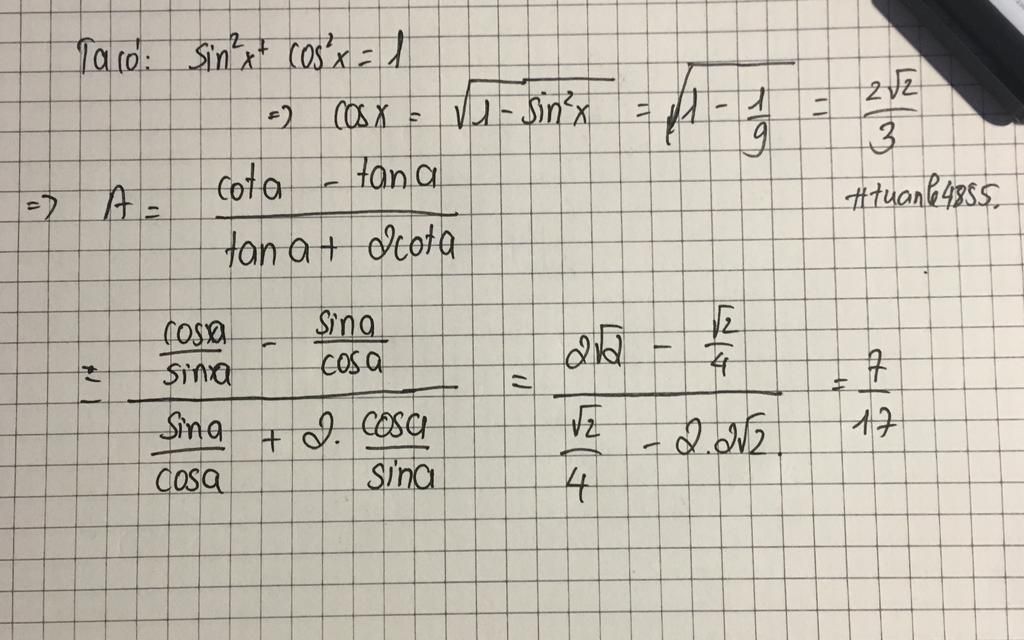 Ta có: sin²x + cos²x = 1
=> cosx = √(1 - sin²x) = √(1 - 1/9) = 2√2/3
=> A = (cota - tana)/(tana + 2cota)
#tuanle4855.
= (cosa/sina - sina/cosa)/(sina/cosa + 2. cosa/sina) = (2√2 - √2/4)/(√2/4 - 2.2√2) = 7/17